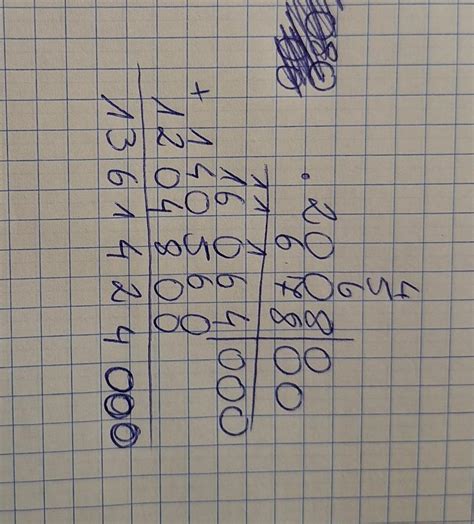 4
5
6
20080
· 67800
11 1
16064000
140560
+ 1204800
1361424000